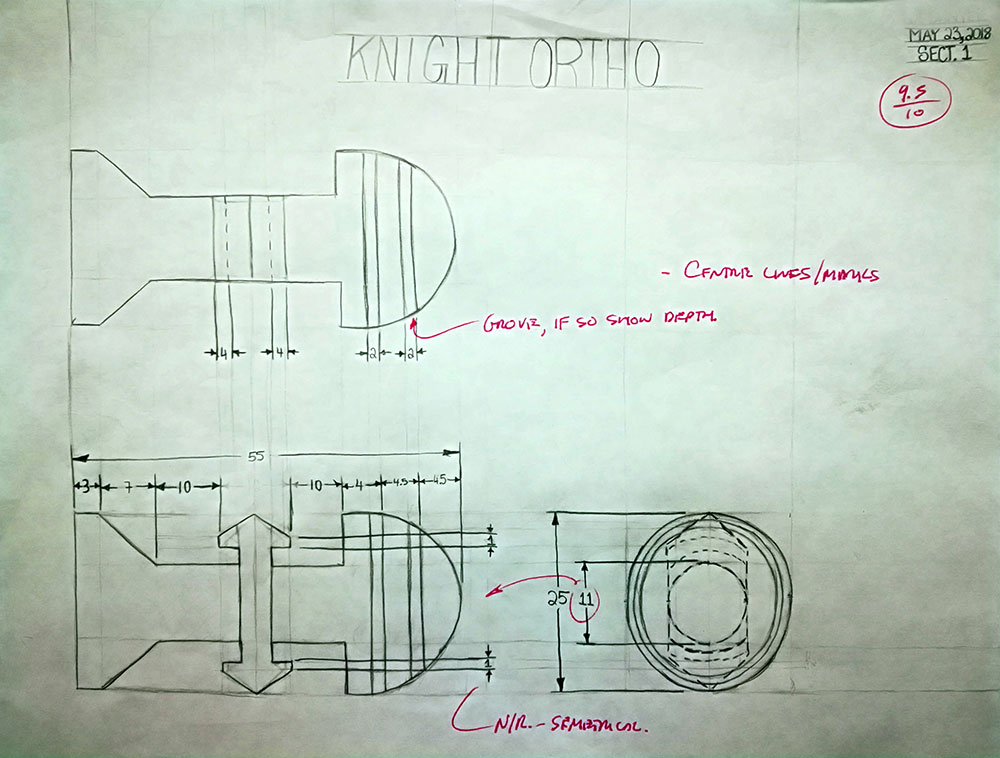 KNIGHT ORTHO
MAY 23, 2018
SECT. 1
9.5
10
- CENTRE LINES/MARKS
GROVE, IF SO SHOW DEPTH.
4
4
2
2
55
3
7
10
10
4
4.5
45
1
25
11
1
N/R. - SEMETRICAL.